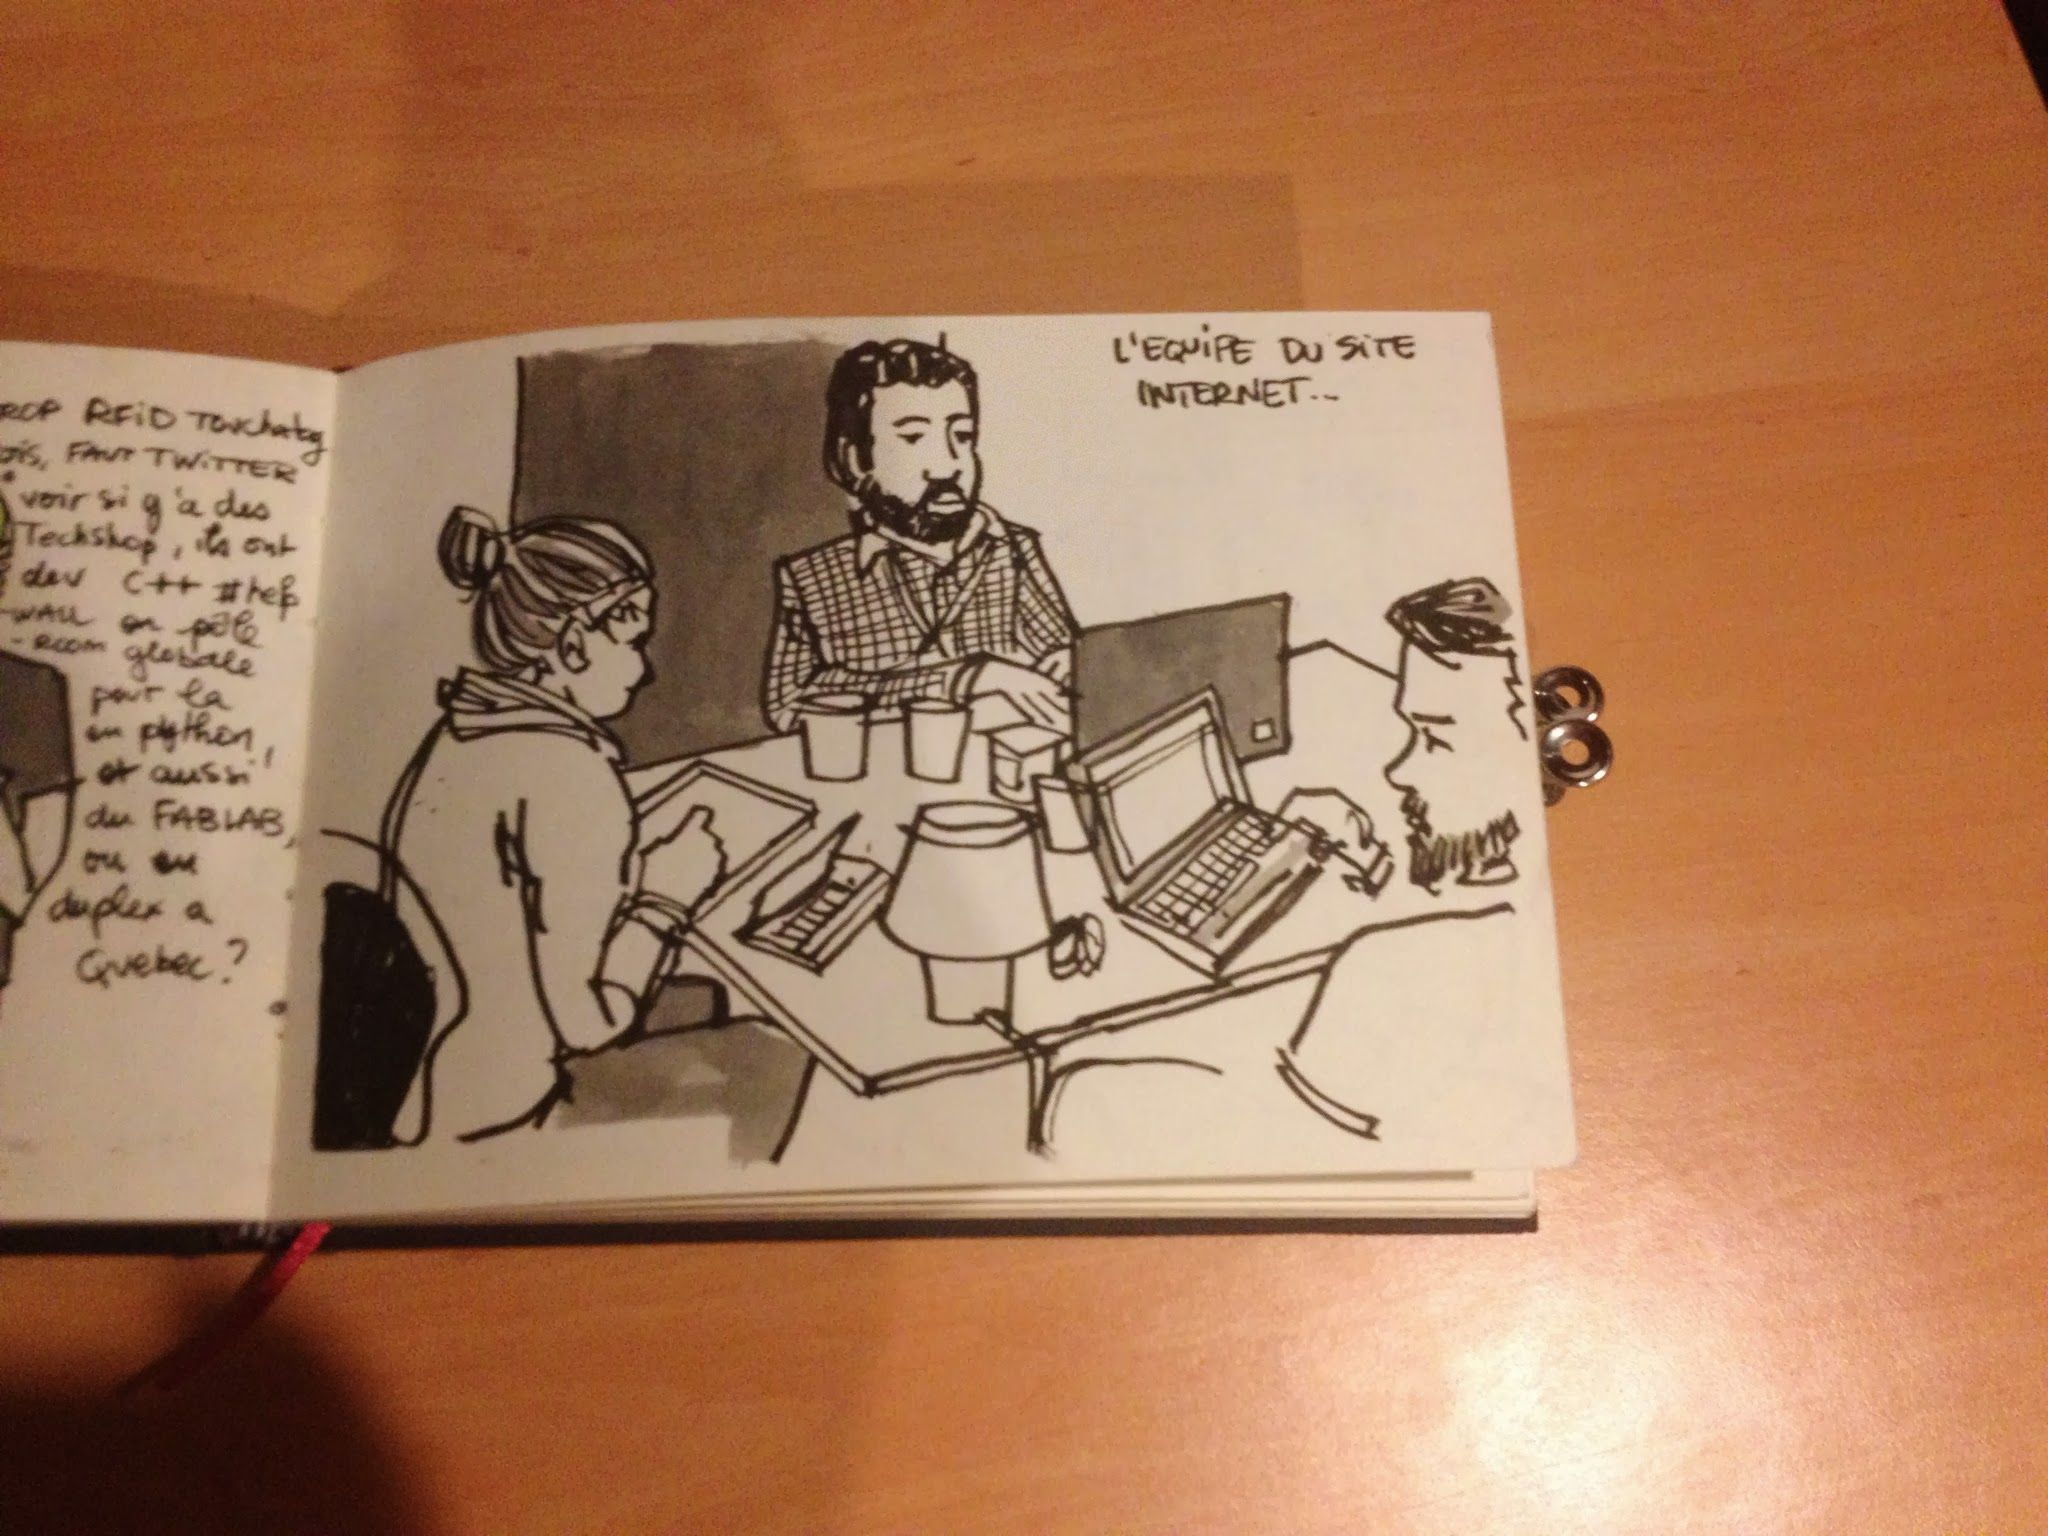 RFID Touchatag
FAUT TWITTER
voir si y'a des
Techshop, ils ont
dev C++ #help
-WALL en pôle
-ROOM globale
pour la
en python,
et aussi
du FABLAB,
ou en
duplex a
Quebec?
L'EQUIPE DU SITE
INTERNET...